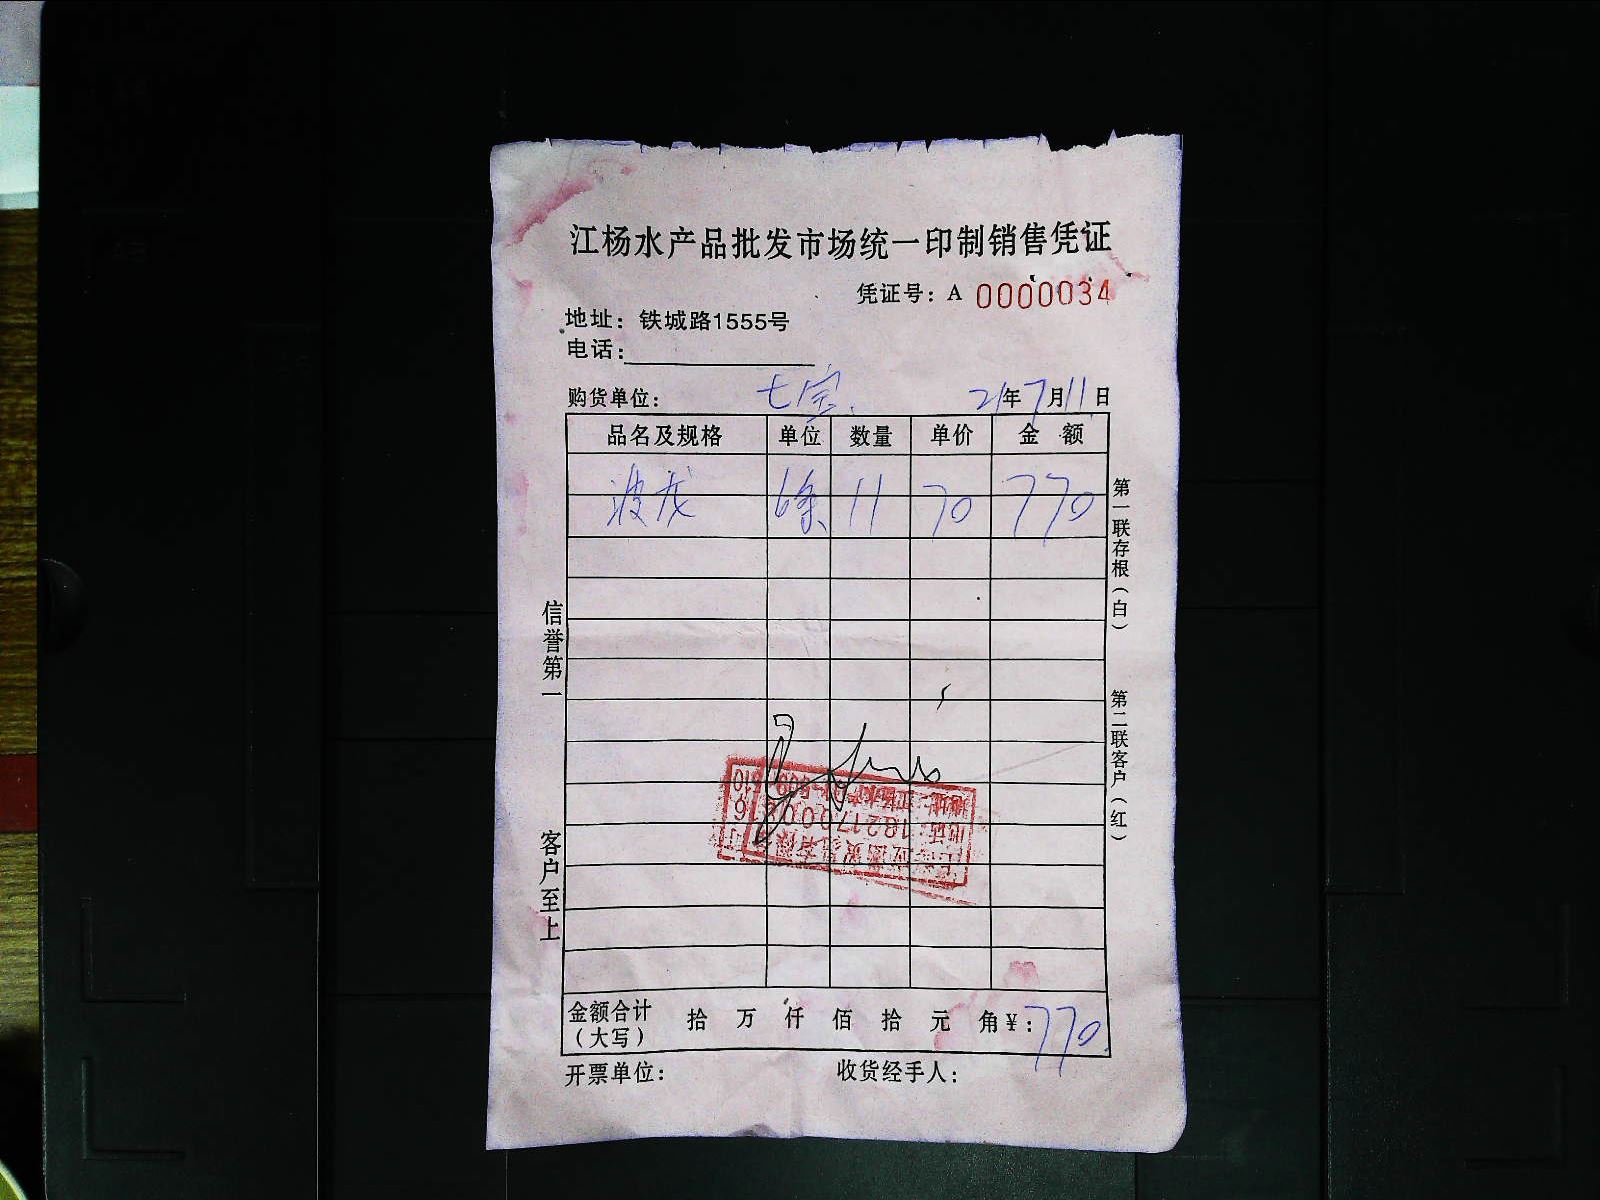 江杨水产品批发市场统一印制销售凭证
凭证号：A 0000034
地址：铁城路1555号
电话：
购货单位： 七宝 21年7月11日
品名及规格 单位 数量 单价 金 额
波龙 6条 11 70 770
第一联存根（白）
第二联客户（红）
信誉第一
客户至上
金额合计（大写） 拾 万 仟 佰 拾 元 角 ¥：770
开票单位： 收货经手人：